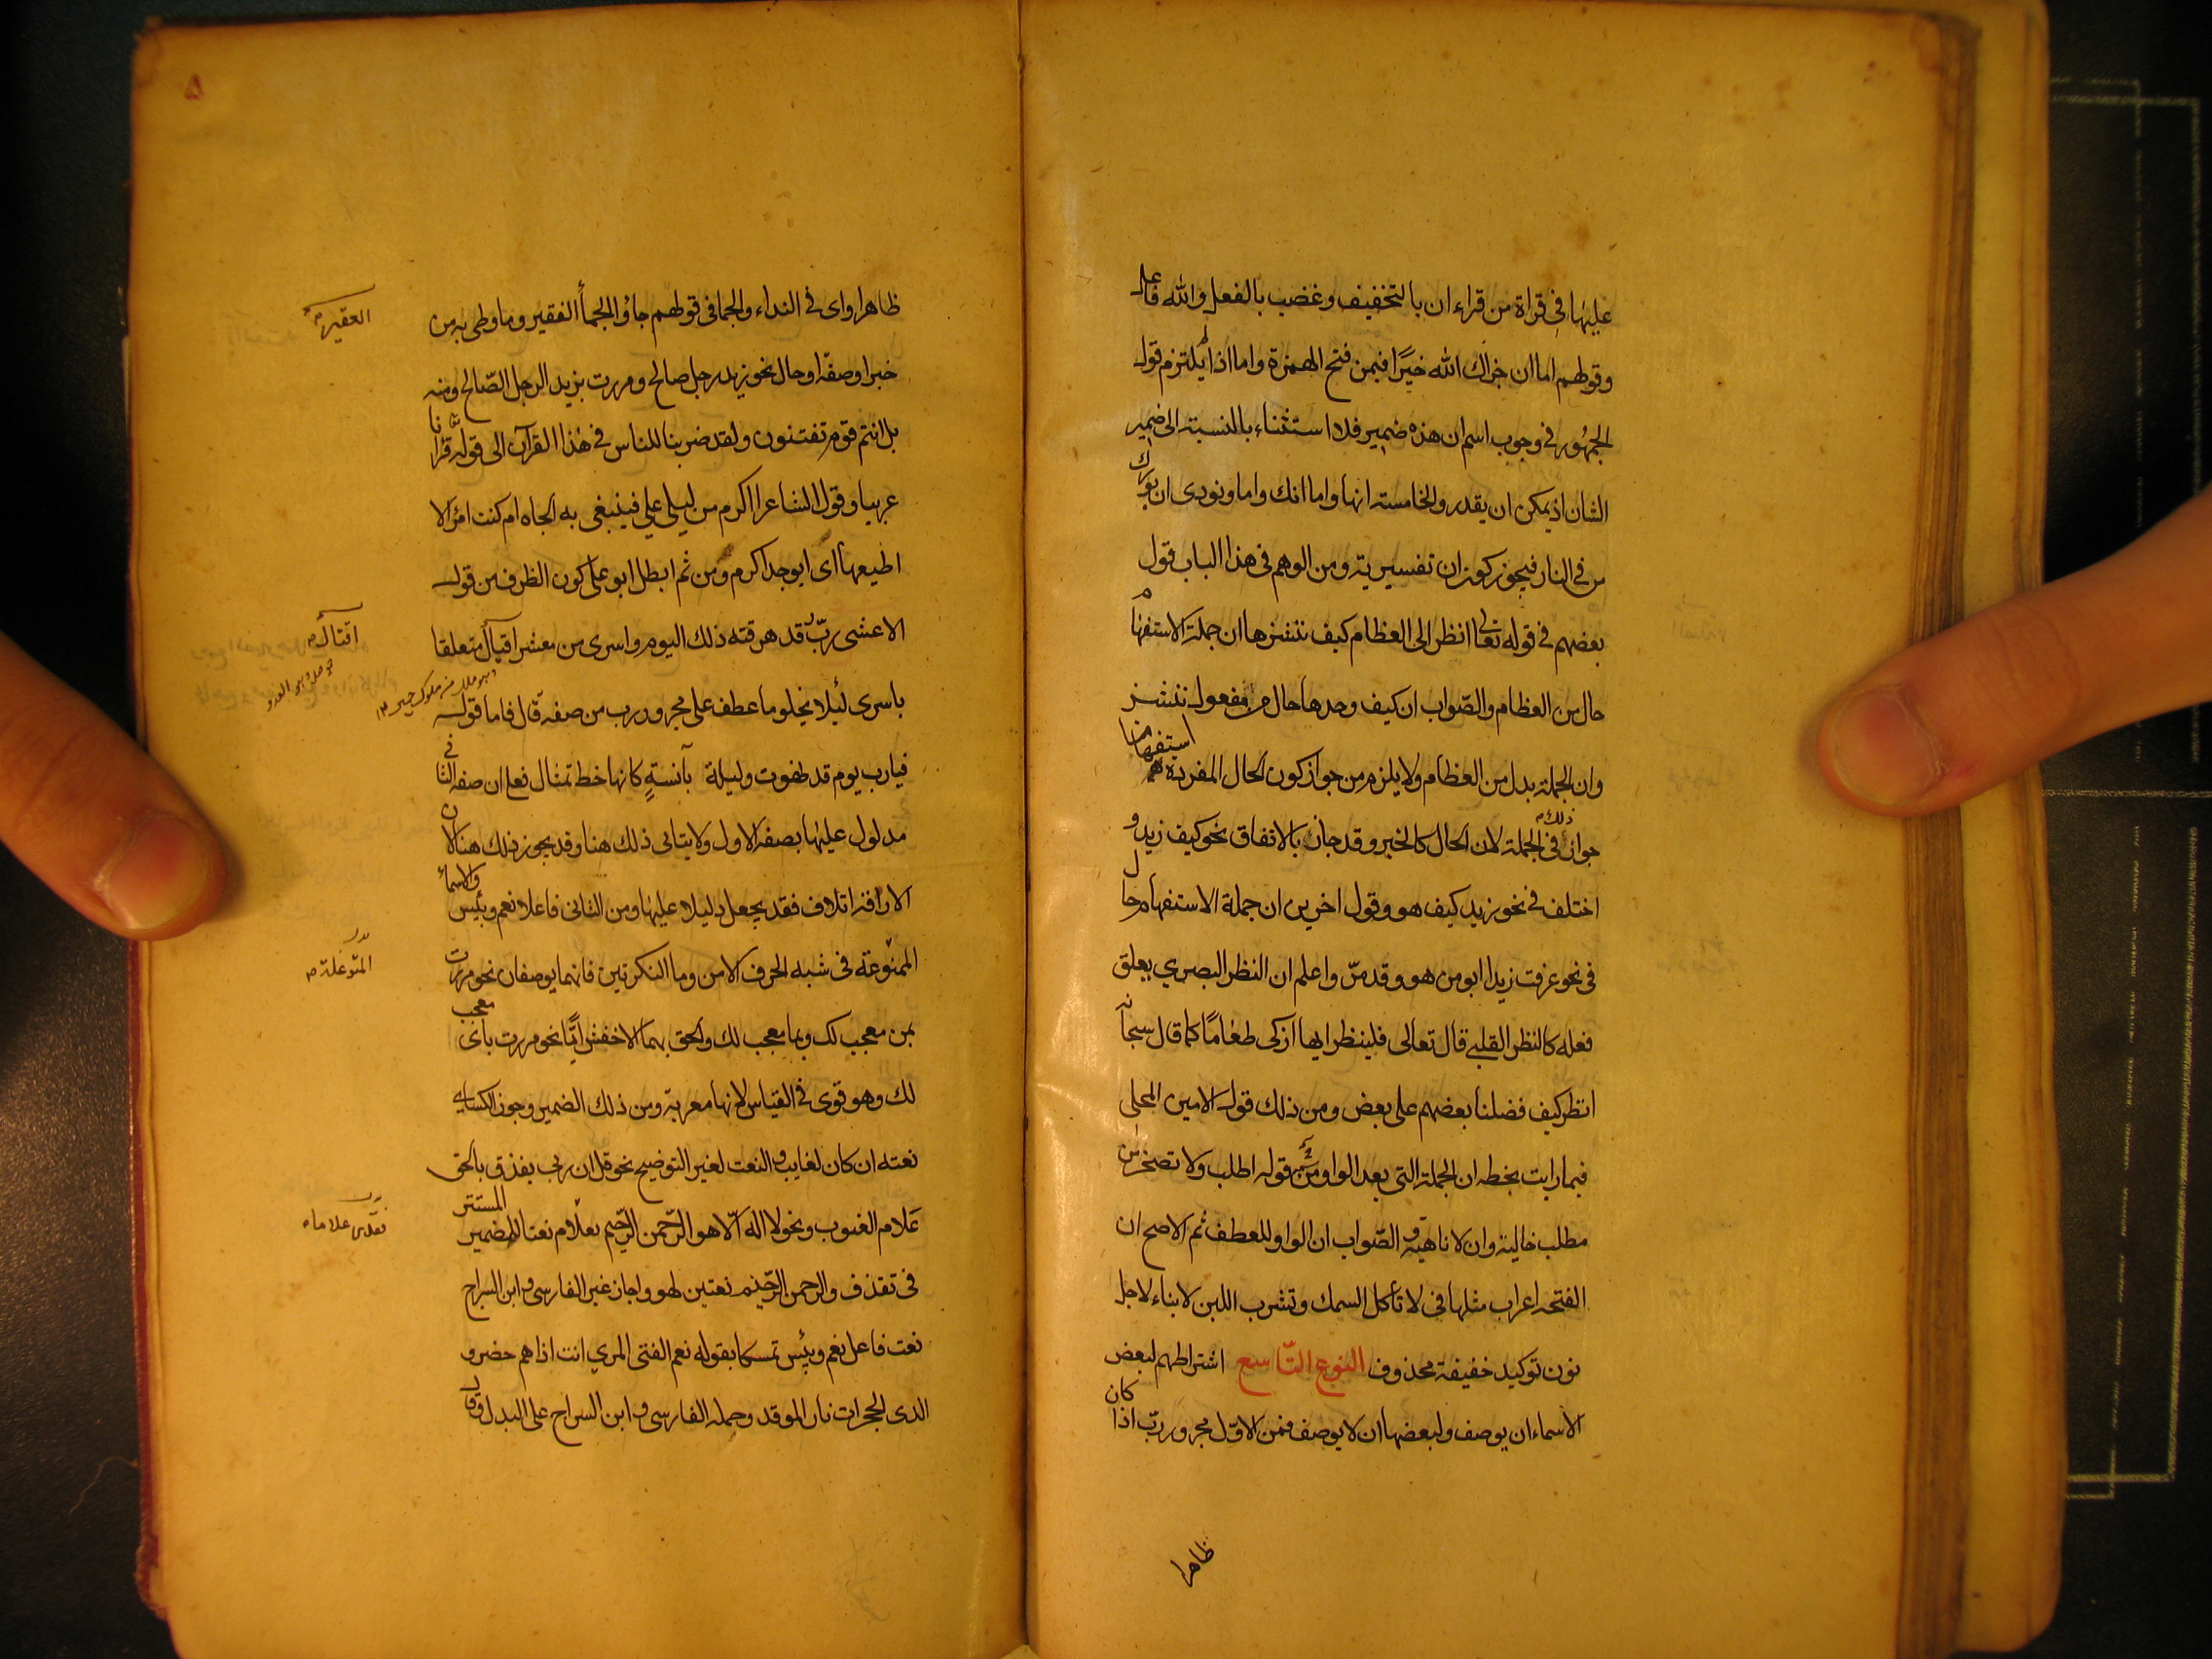 عليها في قراة من قراء ان بالتخفيف وغضب بالفعل والله فاعل
وقولهم اما ان جزاك الله خيرًا فيمن فتح الهمزة واما اذا لم يلتزم قول
الجمهور في وجوب اسم ان هذه ضمير فلا استثناء بالنسبة الى ضمير
الشان اذ يمكن ان يقدر والخامسة انها واما انك واما ونودى ان بورك
من في النار فيجوز كون ان تفسيرية ومن الوهم في هذا الباب قول
بعضهم في قوله تعالى انظر الى العظام كيف ننشزها ان جملة الاستفهام
حال من العظام والصّواب ان كيف وحدها حال من مفعول ننشز
وان الجملة بدل من العظام ولا يلزم من جواز كون الحال المفردة استفهاما
جواز ذلك في الجملة لان الحال كالخبر وقد جاز بالاتفاق نحو كيف زيد و
اختلف في نحو زيد كيف هو وقول اخرين ان جملة الاستفهام حال
في نحو عرفت زيدا ابو من هو وقد مرّ واعلم ان النظر البصري يعلق
فعله كالنظر القلبي قال تعالى فلينظر ايها ازكى طعامًا كما قال سبحانه
انظر كيف فضلنا بعضهم على بعض ومن ذلك قول الامين المحلى
فيما رايت بخطه ان الجملة التي بعد الواو من قوله اطلب ولا تضجر من
مطلب حالية وان لا ناهية و الصّواب ان الواو للعطف ثم الاصح ان
الفتحة اعراب مثلها في لا تأكل السمك وتشرب اللبن لا بناء لاجل
نون توكيد خفيفة محذوف النوع التّاسع اشتراطهم لبعض
الاسماء ان يوصف ولبعضها ان لا يوصف فمن الاوّل مجرور ربّ اذا كان
ظاهرا
ظاهرا واى في النداء والجما في قولهم جاؤا الجمأ الفقير وما وطى به من
العفير
خبر او صفة او حال نحو زيد رجل صالح ومررت بزيد الرجل الصّالح ومنه
بل انتم قوم تفتنون ولقد ضربنا للناس في هذا القرآن الى قوله قرانا
عربيا وقول الشاعر ااكرم من ليلى علي فينبغي به الجاه ام كنت امرًا لا
اطيعها اى ابو جد اكرم ومن ثم ابطل ابو على كون الظرف من قول
الاعشى ربّ قد هرقته ذلك اليوم واسرى من معشر اقيال متعلقا
اقتال
وهو ملك من ملوك حمير
باسرى لئلا يخلو ما عطف على مجرور رب من صفة قال فاما قوله
فيارب يوم قد لهوت وليلة بآنسةٍ كانها خط تمثال فعلى ان صفة الثانى
مدلول عليها بصفة الاول ولا يتاتى ذلك هنا وقد يجوز ذلك هنا لان
الاراقة اتلاف فقد يجعل دليلا عليها ومن الثاني فاعلا نعم وبئس والاسماء
الممنوعة في شبه الحرف الا من وما النكرتين فانهما يوصفان نحو مررت
المتوغلة
بمن معجب لك وبما معجب لك والحق بهما الاخفش ايًّا نحو مررت باى معجب
لك وهو قوى في القياس لانها معربة ومن ذلك الضمير وجوز الكسائي
نعته ان كان لغايب والنعت لغير التوضيح نحو قل ان ربى يقذف بالحق
علّام الغيوب ونحو لا اله الّا هو الرّحمن الرّحيم بعلّام نعتا للضمير المستتر
في تقذف والرحمن الرّحيم نعتين لهو واجاز غير الفارسى وابن السراج
نعت فاعل نعم وبئس تمسكا بقوله نعم الفتى المري انت اذا هم حضروا
لدى الحجرات نار الموقد وحمله الفارسى وابن السراج على البدل وقال